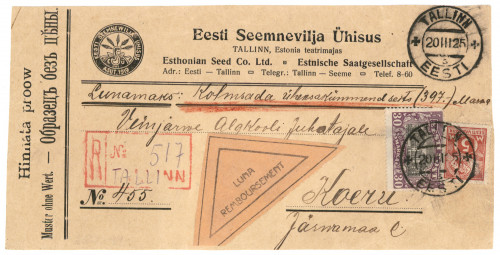 Hinnata proow
Muster ohne Wert. — Образецъ безъ цѣны.
EESTI SEEMNEVILJA ÜHISUS
Eesti Seemnevilja Ühisus
TALLINN, Estonia teatrimajas
Esthonian Seed Co. Ltd. ¤ Estnische Saatgesellschaft
Adr.: Eesti — Tallinn ¤ Telegr.: Tallinn — Seeme ¤ Telef. 8-60
TALLINN
20 III 25
EESTI
Lunamaks: Kolmsada üheksakümmend seitse (397.) Marka
Veinjärve Algkooli Juhatajale
R
No 517
TALLINN
No 455.
LUNA
REMBOURSEMENT
Koeru
Järvamaa
TALLINN
20 III 25
EESTI